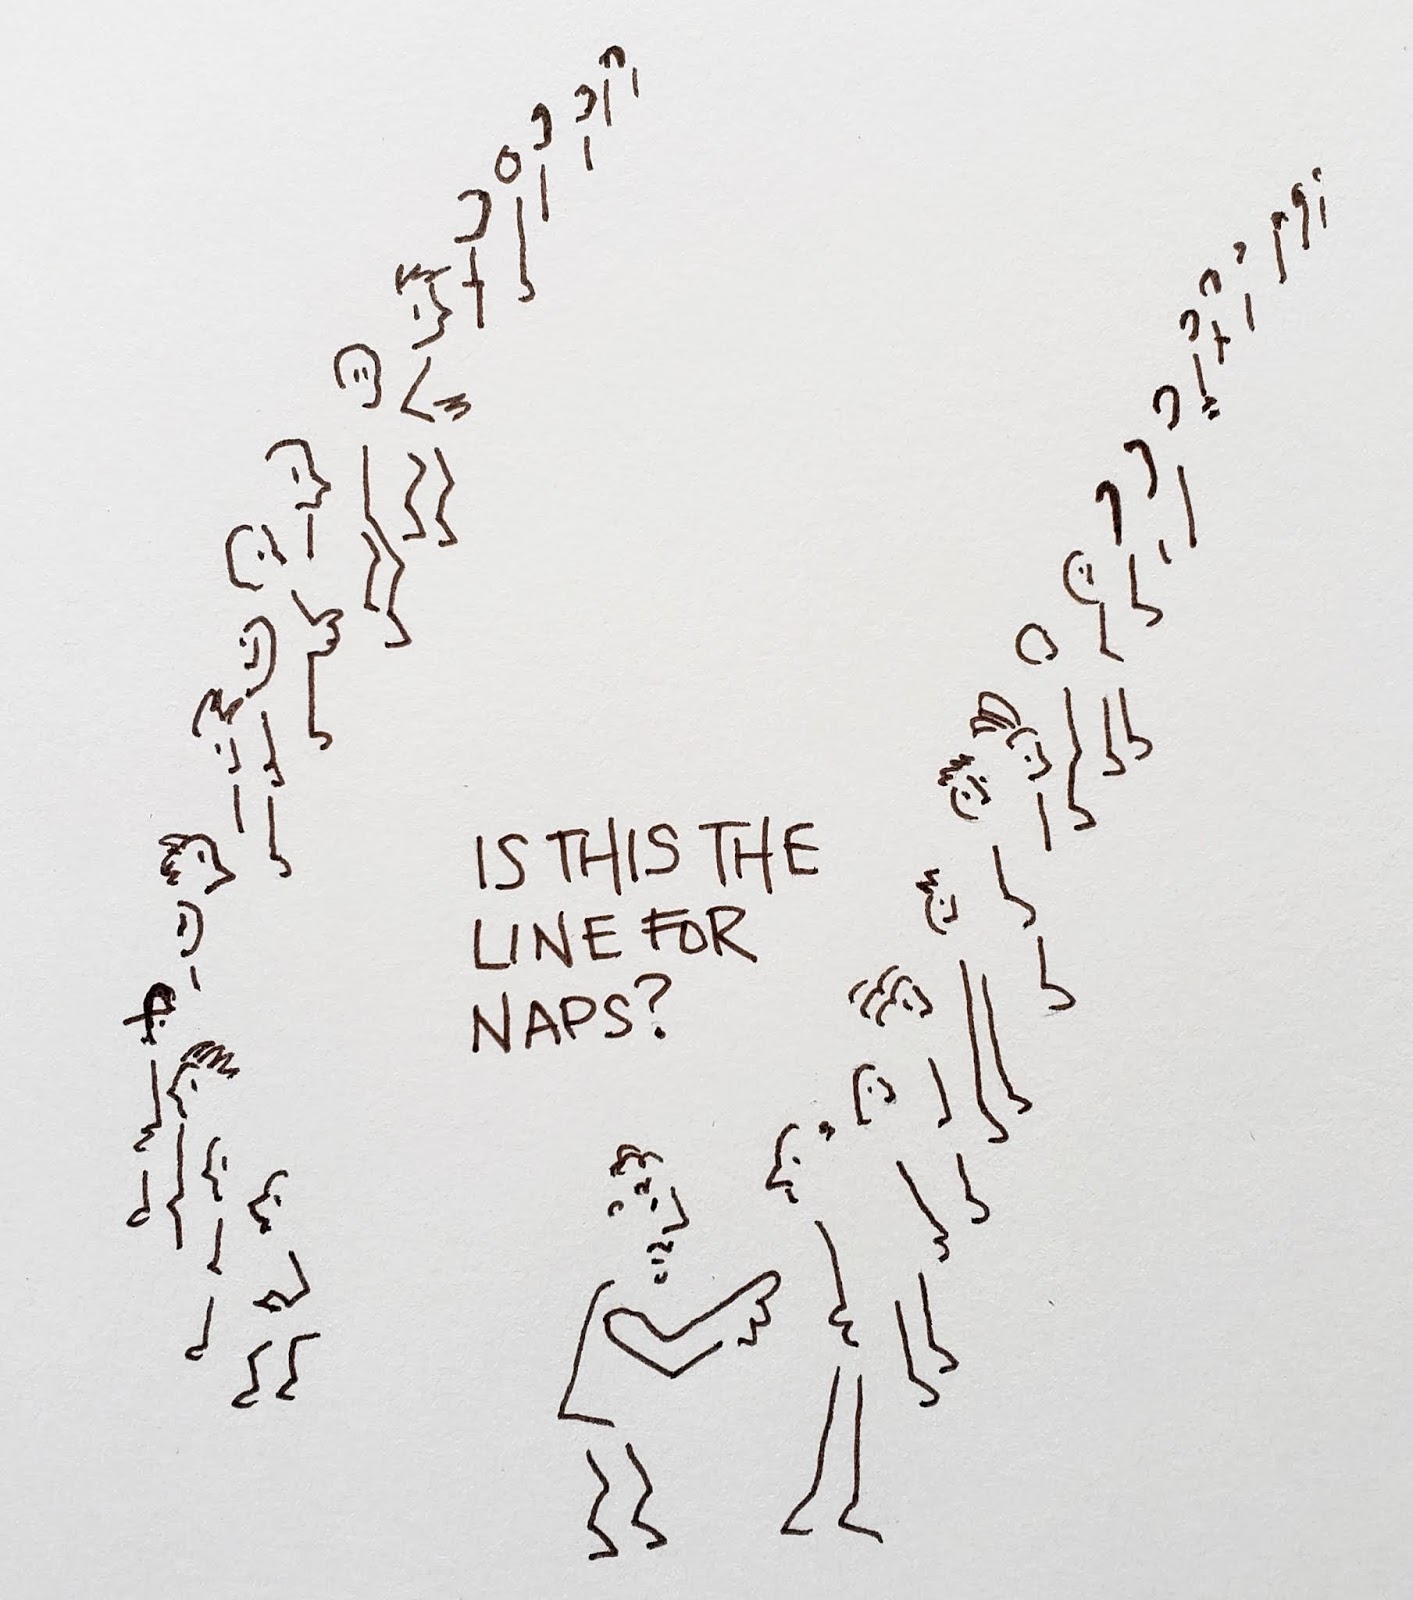 IS THIS THE
LINE FOR
NAPS?